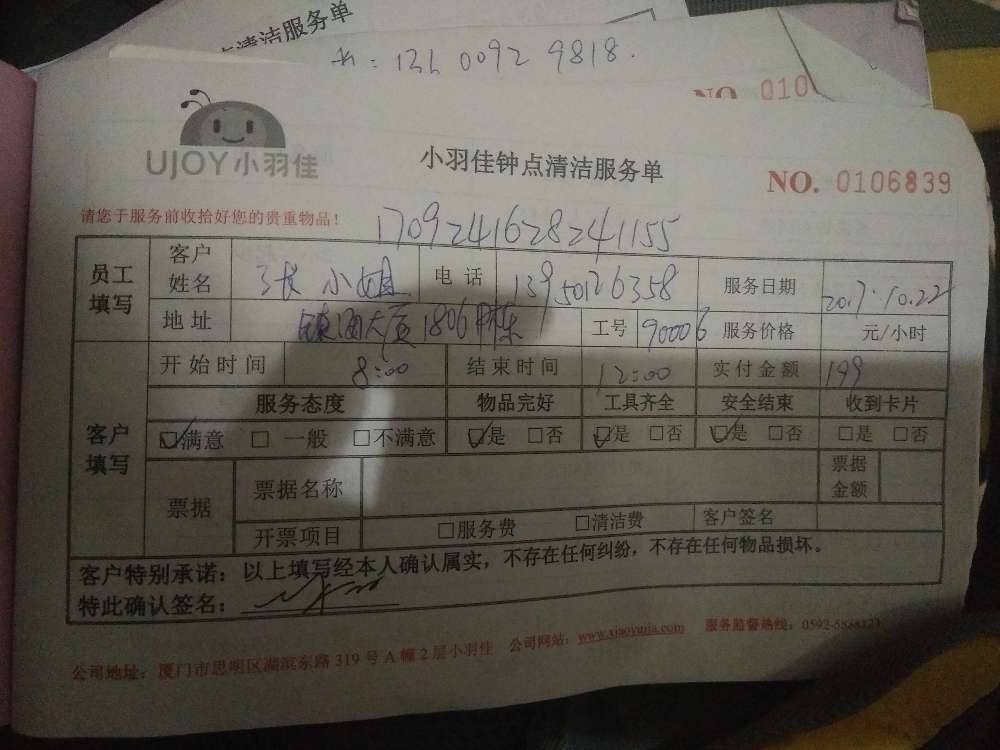 点清洁服务单
NO. 010
UJOY小羽佳
小羽佳钟点清洁服务单
NO. 0106839
请您于服务前收拾好您的贵重物品！
1709241628241155
员工填写 客户姓名 张小姐 电话 13950126358 服务日期
地址 1806 工号 90006 服务价格 元/小时
客户填写 开始时间 8:00 结束时间 12:00 实付金额 199
服务态度 物品完好 工具齐全 安全结束 收到卡片
☑满意 □一般 □不满意 ☑是 □否 ☑是 □否 ☑是 □否 □是 □否
票据 票据名称 票据金额
开票项目 □服务费 □清洁费 客户签名
客户特别承诺：以上填写经本人确认属实，不存在任何纠纷，不存在任何物品损坏。
特此确认签名：
公司地址：厦门市思明区湖滨东路319号A幢2层小羽佳 公司网站：www.xiaoyujia.com 服务监督热线：